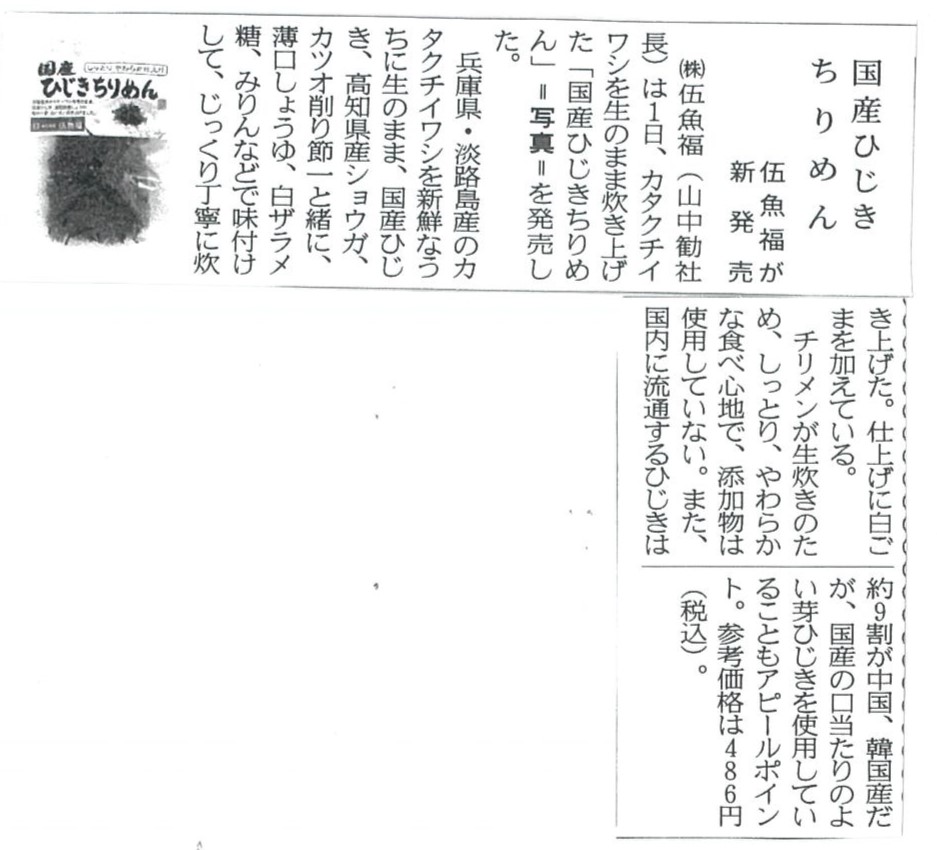 国産ひじき
ちりめん
伍魚福が
新発売
㈱伍魚福（山中勧社
長）は1日、カタクチイ
ワシを生のまま炊き上げ
た「国産ひじきちりめ
ん」＝写真＝を発売し
た。
兵庫県・淡路島産のカ
タクチイワシを新鮮なう
ちに生のまま、国産ひじ
き、高知県産ショウガ、
カツオ削り節一と緒に、
薄口しょうゆ、白ザラメ
糖、みりんなどで味付け
して、じっくり丁寧に炊
き上げた。仕上げに白ご
まを加えている。
チリメンが生炊きのた
め、しっとり、やわらか
な食べ心地で、添加物は
使用していない。また、
国内に流通するひじきは
約9割が中国、韓国産だ
が、国産の口当たりのよ
い芽ひじきを使用してい
ることもアピールポイン
ト。参考価格は486円
（税込）。
国産
ひじきちりめん